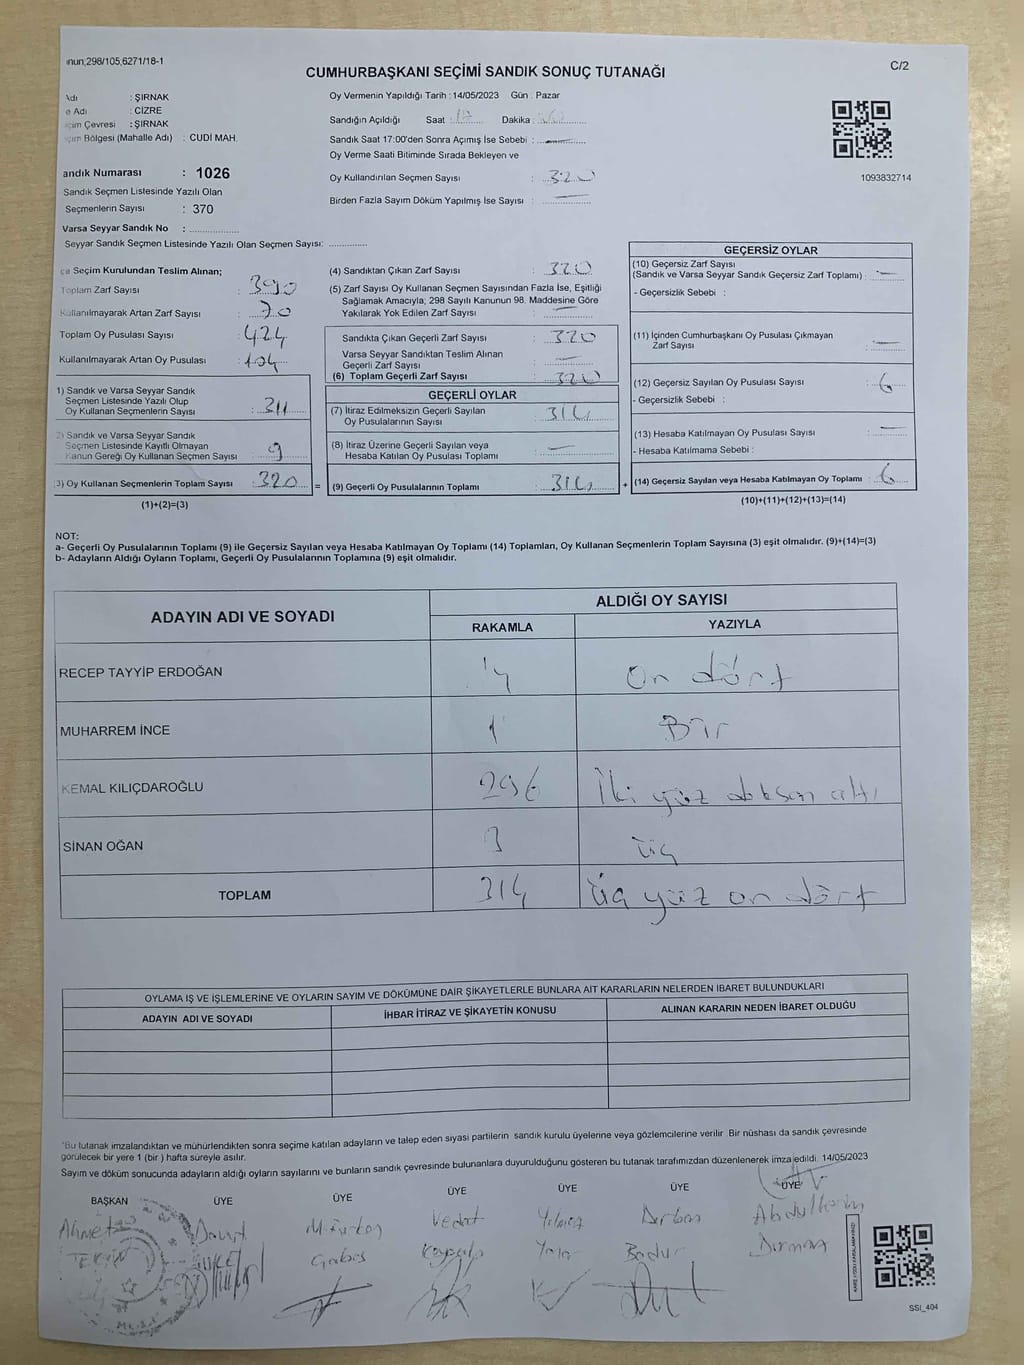 nun;298/105,6271/18-1
C/2
CUMHURBAŞKANI SEÇİMİ SANDIK SONUÇ TUTANAĞI
Adı : ŞIRNAK
e Adı : CİZRE
çim Çevresi : ŞIRNAK
çim Bölgesi (Mahalle Adı) : CUDİ MAH.
andık Numarası : 1026
Sandık Seçmen Listesinde Yazılı Olan
Seçmenlerin Sayısı : 370
Varsa Seyyar Sandık No : ..............
Seyyar Sandık Seçmen Listesinde Yazılı Olan Seçmen Sayısı: ............
Oy Vermenin Yapıldığı Tarih : 14/05/2023 Gün : Pazar
Sandığın Açıldığı Saat : 17 Dakika :
Sandık Saat 17:00'den Sonra Açımış İse Sebebi :
Oy Verme Saati Bitiminde Sırada Bekleyen ve
Oy Kullandırılan Seçmen Sayısı : 320
Birden Fazla Sayım Döküm Yapılmış İse Sayısı :
1093832714
çe Seçim Kurulundan Teslim Alınan;
Toplam Zarf Sayısı : 390
Kullanılmayarak Artan Zarf Sayısı : 70
Toplam Oy Pusulası Sayısı : 424
Kullanılmayarak Artan Oy Pusulası : 104
1) Sandık ve Varsa Seyyar Sandık
Seçmen Listesinde Yazılı Olup
Oy Kullanan Seçmenlerin Sayısı : 311
2) Sandık ve Varsa Seyyar Sandık
Seçmen Listesinde Kayıtlı Olmayan
Kanun Gereği Oy Kullanan Seçmen Sayısı : 9
3) Oy Kullanan Seçmenlerin Toplam Sayısı : 320 =
(1)+(2)=(3)
(4) Sandıktan Çıkan Zarf Sayısı : 320
(5) Zarf Sayısı Oy Kullanan Seçmen Sayısından Fazla İse, Eşitliği
Sağlamak Amacıyla; 298 Sayılı Kanunun 98. Maddesine Göre
Yakılarak Yok Edilen Zarf Sayısı :
Sandıkta Çıkan Geçerli Zarf Sayısı : 320
Varsa Seyyar Sandıktan Teslim Alınan
Geçerli Zarf Sayısı :
(6) Toplam Geçerli Zarf Sayısı : 320
GEÇERLİ OYLAR
(7) İtiraz Edilmeksizin Geçerli Sayılan
Oy Pusulalarının Sayısı : 314
(8) İtiraz Üzerine Geçerli Sayılan veya
Hesaba Katılan Oy Pusulası Toplamı :
(9) Geçerli Oy Pusulalarının Toplamı : 314 +
GEÇERSİZ OYLAR
(10) Geçersiz Zarf Sayısı
(Sandık ve Varsa Seyyar Sandık Geçersiz Zarf Toplamı) :
- Geçersizlik Sebebi :
(11) İçinden Cumhurbaşkanı Oy Pusulası Çıkmayan
Zarf Sayısı :
(12) Geçersiz Sayılan Oy Pusulası Sayısı : 6
- Geçersizlik Sebebi :
(13) Hesaba Katılmayan Oy Pusulası Sayısı :
- Hesaba Katılmama Sebebi :
(14) Geçersiz Sayılan veya Hesaba Katılmayan Oy Toplamı : 6
(10)+(11)+(12)+(13)=(14)
NOT:
a- Geçerli Oy Pusulalarının Toplamı (9) ile Geçersiz Sayılan veya Hesaba Katılmayan Oy Toplamı (14) Toplamları, Oy Kullanan Seçmenlerin Toplam Sayısına (3) eşit olmalıdır. (9)+(14)=(3)
b- Adayların Aldığı Oyların Toplamı, Geçerli Oy Pusulalarının Toplamına (9) eşit olmalıdır.
ADAYIN ADI VE SOYADI ALDIĞI OY SAYISI
RAKAMLA YAZIYLA
RECEP TAYYİP ERDOĞAN 14 On dört
MUHARREM İNCE 1 Bir
KEMAL KILIÇDAROĞLU 296 İki yüz doksan altı
SİNAN OĞAN 3 üç
TOPLAM 314 üç yüz on dört
OYLAMA İŞ VE İŞLEMLERİNE VE OYLARIN SAYIM VE DÖKÜMÜNE DAİR ŞİKAYETLERLE BUNLARA AİT KARARLARIN NELERDEN İBARET BULUNDUKLARI
ADAYIN ADI VE SOYADI İHBAR İTİRAZ VE ŞİKAYETİN KONUSU ALINAN KARARIN NEDEN İBARET OLDUĞU
*Bu tutanak imzalandıktan ve mühürlendikten sonra seçime katılan adayların ve talep eden siyasi partilerin sandık kurulu üyelerine veya gözlemcilerine verilir. Bir nüshası da sandık çevresinde
görülecek bir yere 1 (bir ) hafta süreyle asılır.
Sayım ve döküm sonucunda adayların aldığı oyların sayılarını ve bunların sandık çevresinde bulunanlara duyurulduğunu gösteren bu tutanak tarafımızdan düzenlenerek imza edildi. 14/05/2023
BAŞKAN ÜYE ÜYE ÜYE ÜYE ÜYE ÜYE
Ahmet Davut Vedat Yılmaz
TEKİN Badur
SSI_404